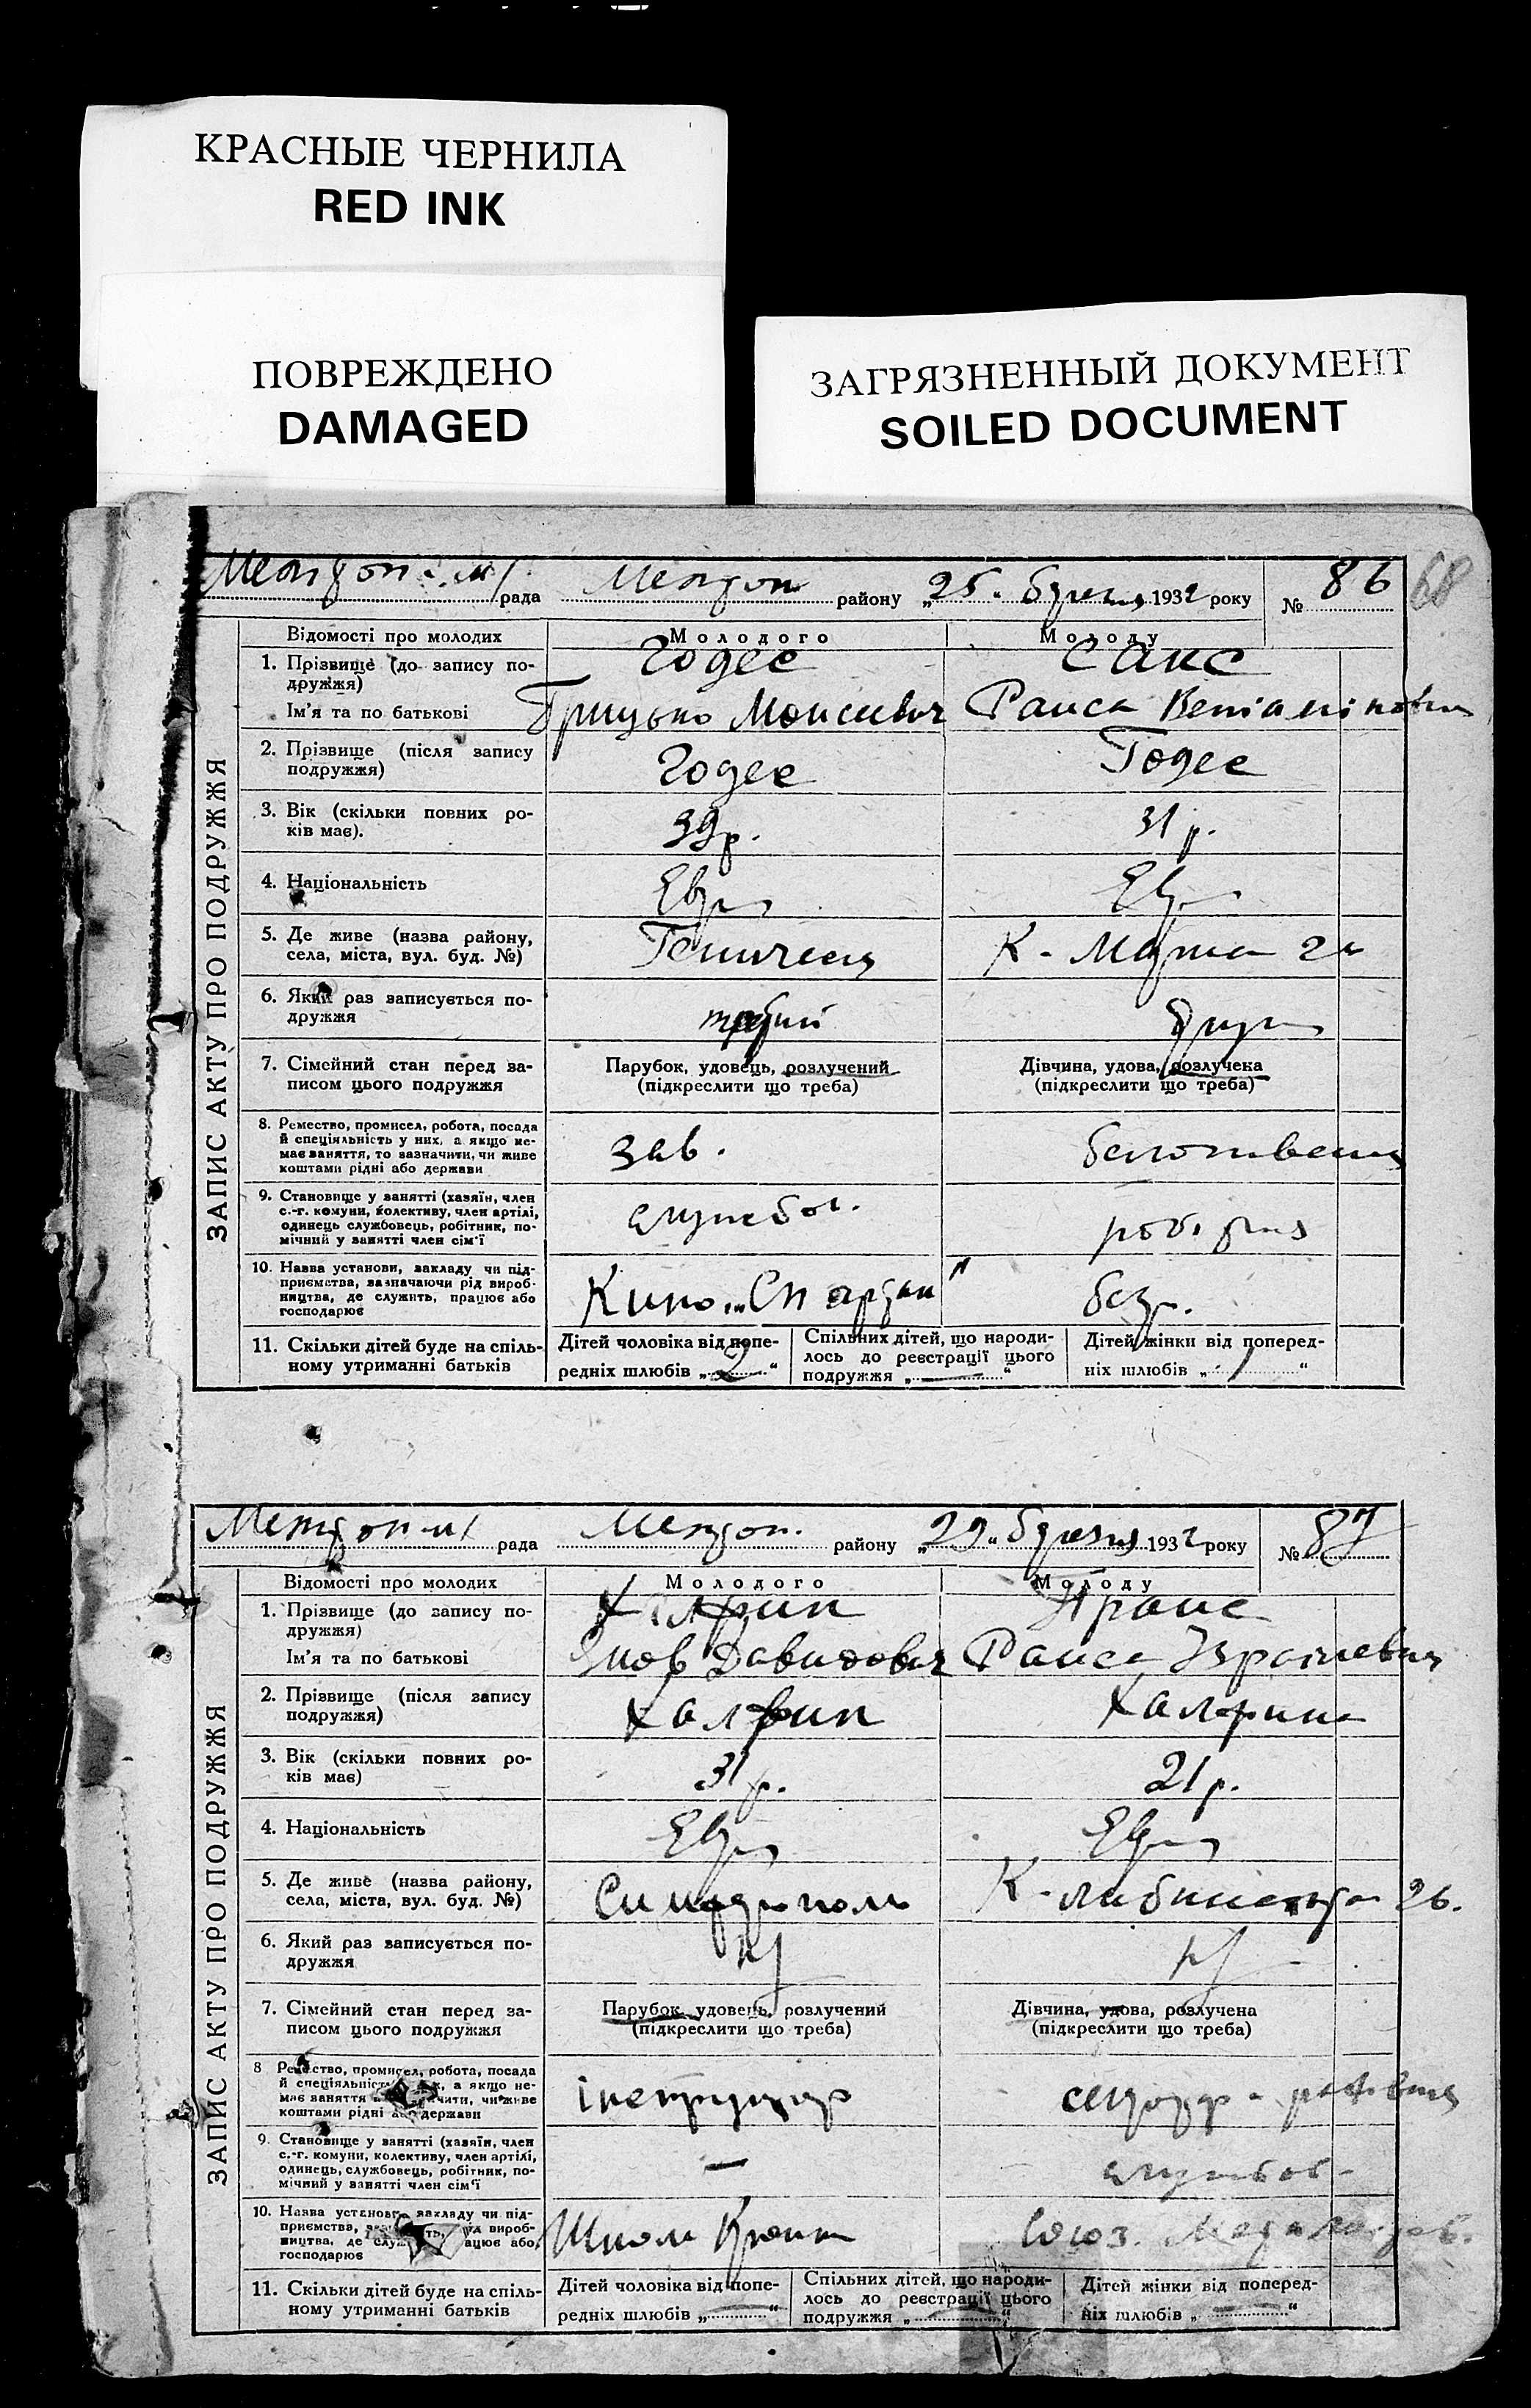 КРАСНЫЕ ЧЕРНИЛА
RED INK
ПОВРЕЖДЕНО
DAMAGED
ЗАГРЯЗНЕННЫЙ ДОКУМЕНТ
SOILED DOCUMENT
68
рада району „25" 1932 року № 86
ЗАПИС АКТУ ПРО ПОДРУЖЖЯ
Відомості про молодих Молодого Молоду
1. Прізвище (до запису по- Годес Сакс
дружжя)
Ім'я та по батькові Грицько Моисеевич Раиса Веніамінов
2. Прізвище (після запису Годес Годес
подружжя)
3. Вік (скільки повних ро- 39 р. 31 р.
ків має).
4. Національність
5. Де живе (назва району, К-Маркса
села, міста, вул. буд. №)
6. Який раз записується по-
дружжя
7. Сімейний стан перед за- Парубок, удовець, розлучений Дівчина, удова, розлучена
писом цього подружжя (підкреслити що треба) (підкреслити що треба)
8. Ремество, промисел, робота, посада зав.
й спеціяльність у них, а якщо не-
має заняття, то зазначити, чи живе
коштами рідні або держави
9. Становище у занятті (хазяїн, член службов.
с.-г. комуни, колективу, член артілі,
одинець службовець, робітник, по-
мічний у занятті член сім'ї
10. Назва установи, закладу чи під- Кино „Спартак" безр.
приємства, зазначаючи рід вироб-
ництва, де служить, працює або
господарює
11. Скільки дітей буде на спіль- Дітей чоловіка від попе- Спільних дітей, що народи- Дітей жінки від поперед-
ному утриманні батьків редніх шлюбів „2" лось до реєстрації цього ніх шлюбів „1"
подружжя „—"
рада району „29" березня 1932 року № 87
ЗАПИС АКТУ ПРО ПОДРУЖЖЯ
Відомості про молодих Молодого Молоду
1. Прізвище (до запису по- Халфин
дружжя)
Ім'я та по батькові Яков Давидович Раиса Израилевна
2. Прізвище (після запису Халфин Халфина
подружжя)
3. Вік (скільки повних ро- 31 р. 21 р.
ків має)
4. Національність
5. Де живе (назва району, Симферополь К-Либкнехта 26.
села, міста, вул. буд. №)
6. Який раз записується по-
дружжя
7. Сімейний стан перед за- Парубок, удовець, розлучений Дівчина, удова, розлучена
писом цього подружжя (підкреслити що треба) (підкреслити що треба)
8 Ремество, промисел, робота, посада інструктор
й спеціяльність а якщо не-
має заняття чи живе
коштами рідні або держави
9. Становище у занятті (хазяїн, член — службов-
с.-г. комуни, колективу, член артілі,
одинець, службовець, робітник, по-
мічний у занятті член сім'ї
10. Назва установи, закладу чи під- Союз.
приємства, рід вироб-
ництва, де працює або
господарює
11. Скільки дітей буде на спіль- Дітей чоловіка від попе- Спільних дітей, що народи- Дітей жінки від поперед-
ному утриманні батьків редніх шлюбів „—" лось до реєстрації цього ніх шлюбів „—"
подружжя „—"